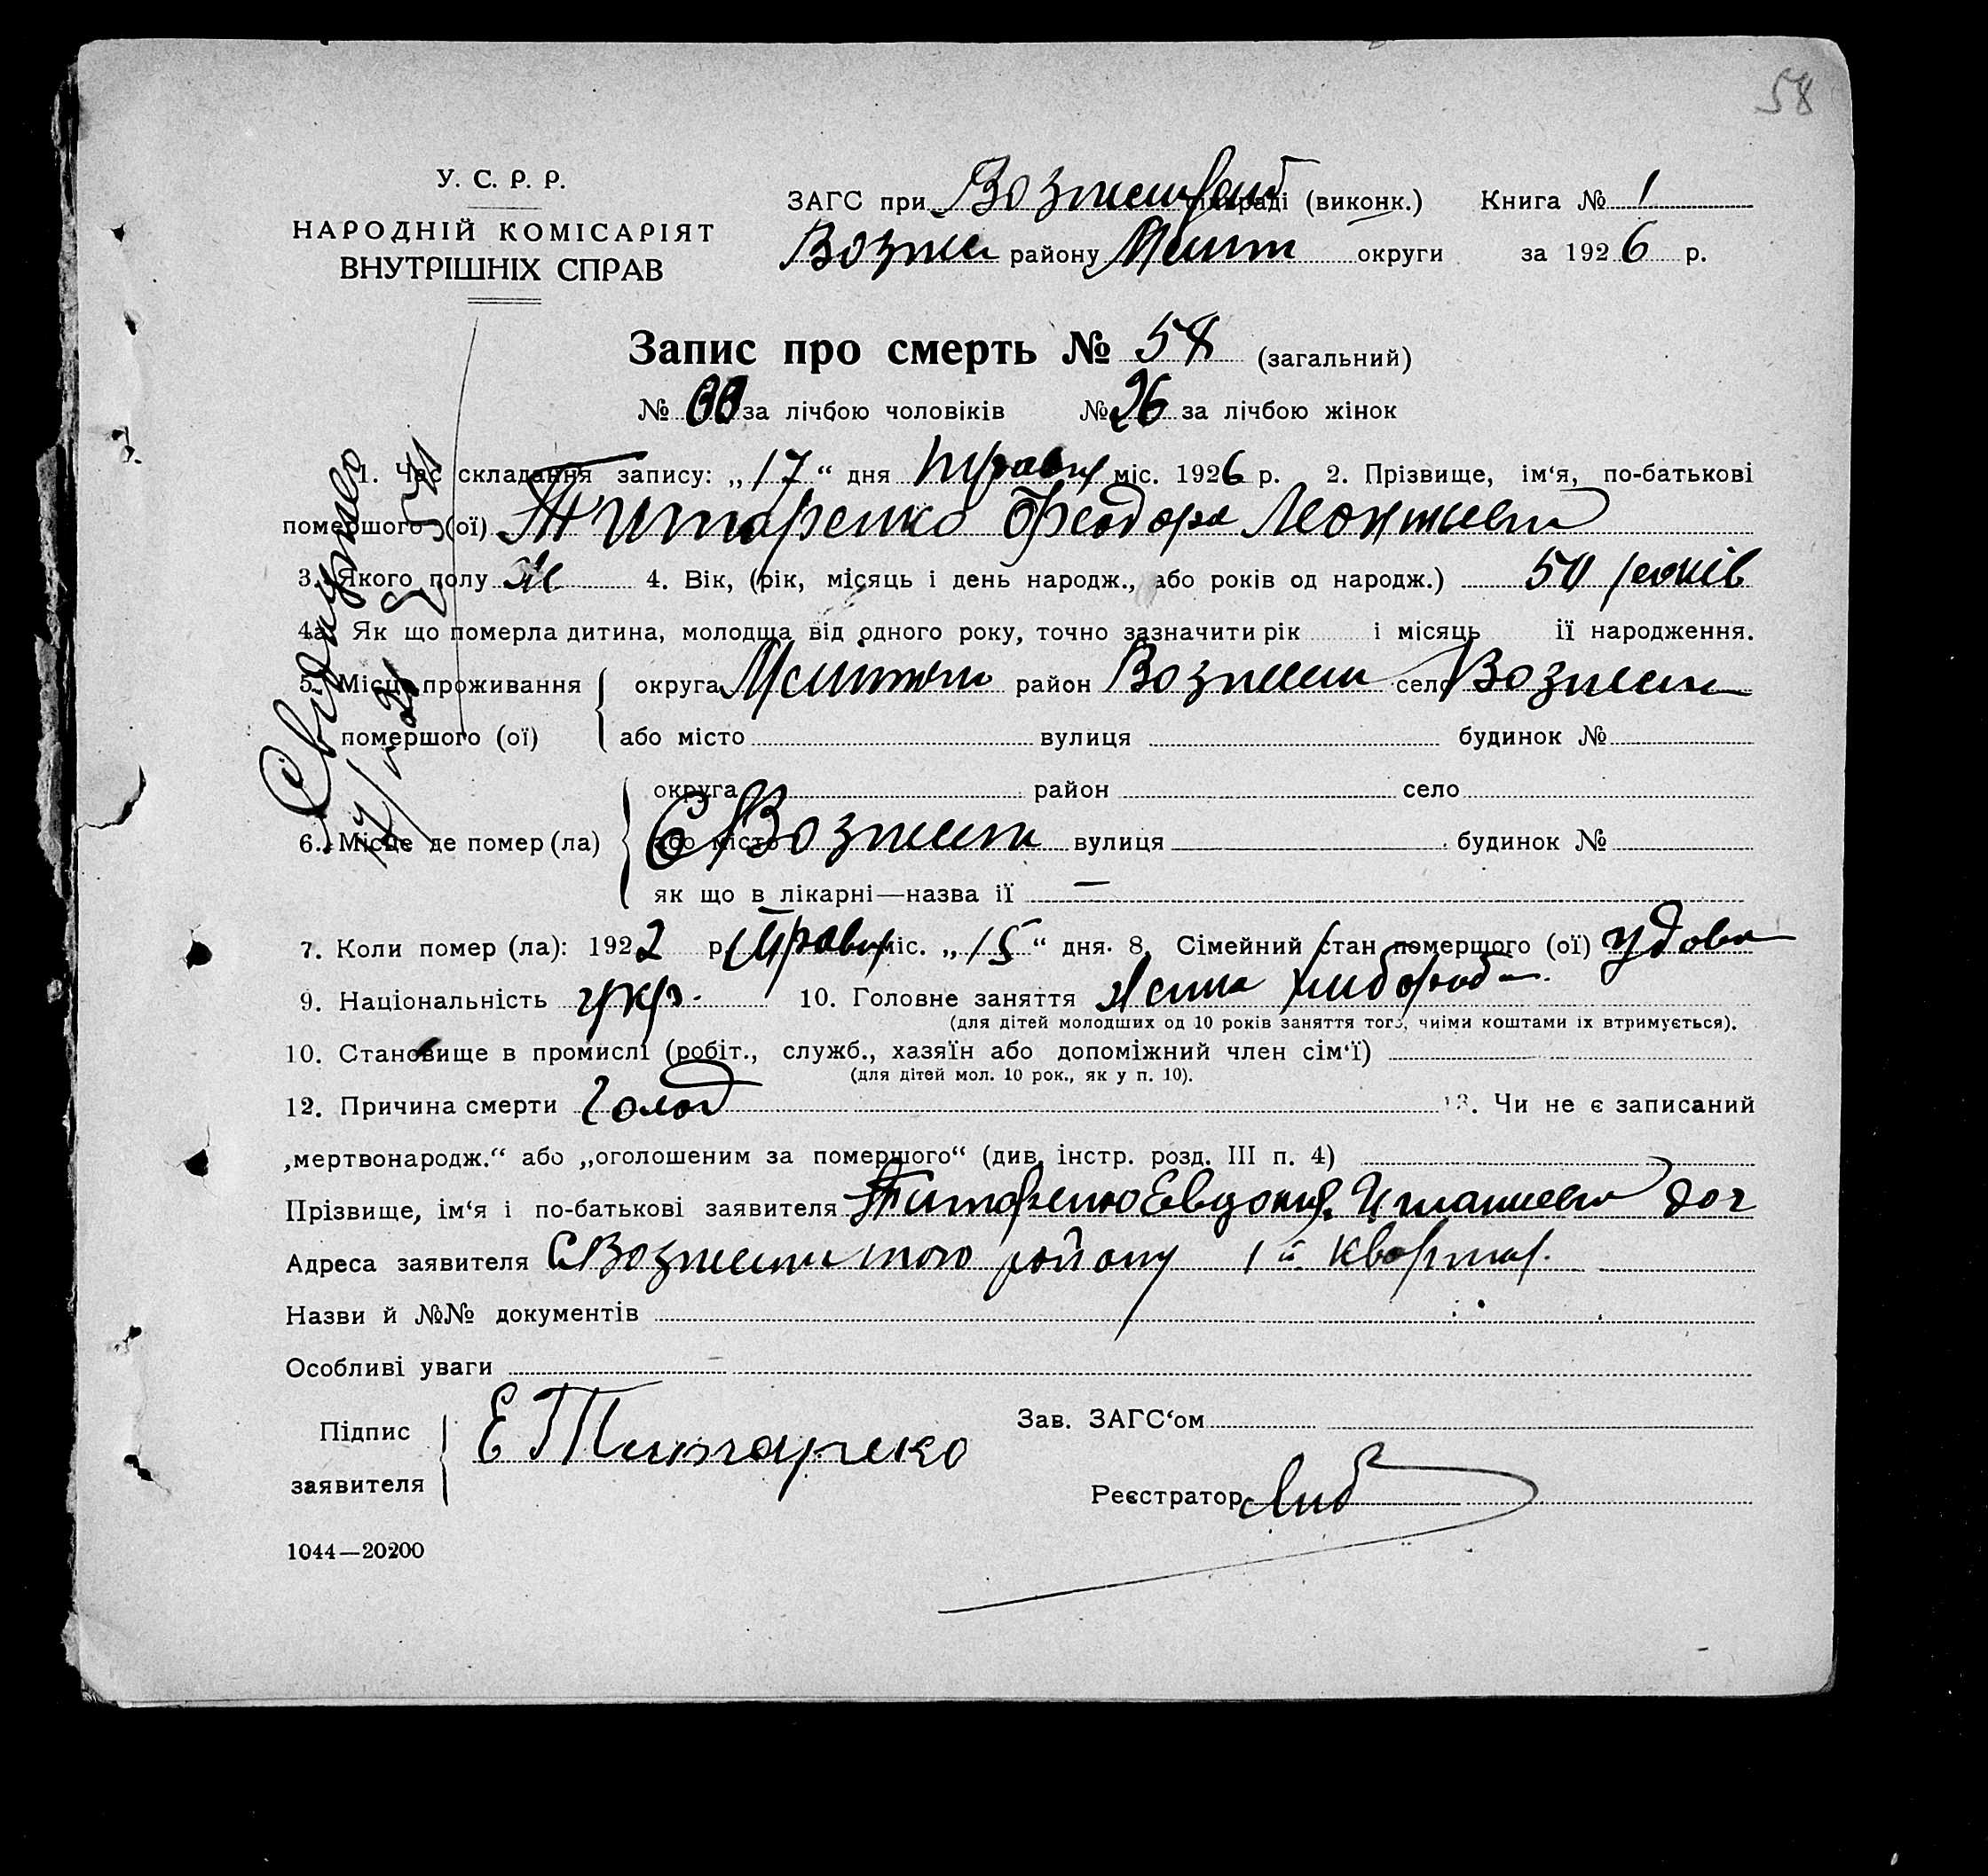 58
У. С. Р. Р.
НАРОДНІЙ КОМІСАРІЯТ
ВНУТРІШНІХ СПРАВ
ЗАГС при раді (виконк.) Книга № 1
Возне району Меліт округи за 1926 р.
Запис про смерть № 58 (загальний)
№ за лічбою чоловіків № 26 за лічбою жінок
1. Час складання запису: „17“ дня травня міс. 1926 р. 2. Прізвище, ім‘я, по-батькові
помершого (ої) Титаренко Феодора Леонтиевн
3. Якого полу 4. Вік, (рік, місяць і день народж., або років од народж.) 50 років
4а. Як що померла дитина, молодща від одного року, точно зазначити рік і місяць ії народження.
5. Місце проживання округа Мелітоп район Вознесен село Вознесен
помершого (ої) або місто вулиця будинок №
округа район село
6. Місце де помер (ла) або місто С Вознесен вулиця будинок №
як що в лікарні—назва ії —
7. Коли помер (ла): 1922 р. травня міс. „15“ дня. 8. Сімейний стан помершого (ої) удова
9. Національність укр. 10. Головне заняття
(для дітей молодших од 10 років заняття того, чиіми коштами іх втримується).
10. Становище в промислі (робіт., служб., хазяїн або допоміжний член сім‘ї)
(для дітей мол. 10 рок., як у п. 10).
12. Причина смерти Голод 13. Чи не є записаний
„мертвонародж.“ або „оголошеним за померщого“ (див. інстр. розд. III п. 4)
Прізвище, ім‘я і по-батькові заявителя Титаренко Евдокия доч
Адреса заявителя С Вознесен того району 1й квартал.
Назви й №№ документів
Особливі уваги
Підпис заявителя Е Титаренко
Зав. ЗАГС‘ом
Реєстратор
1044—20200